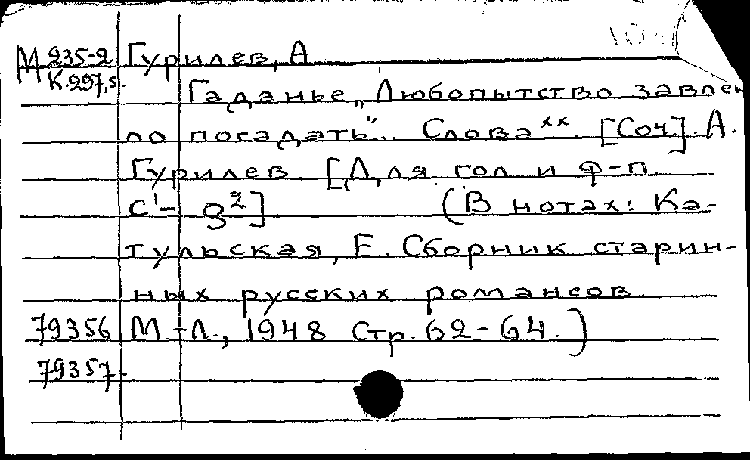 М 235-2 Гурилев, А
К.297,5.
Гаданье „Любопытство завлек
ло погадать“.. Слова ××. [Соч]. А.
Гурилев. [Для гол и ф-п
c¹- g²] (В нотах: Ка-
тульская, Е. Сборник старин-
ных русских романсов
79356 М-Л., 1948 Стр. 62-64.)
79357.